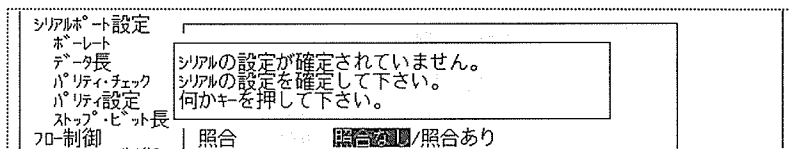 ｼﾘｱﾙﾎﾟｰﾄ設定
ﾎﾞｰﾚｰﾄ
ﾃﾞｰﾀ長
ﾊﾟﾘﾃｨ・ﾁｪｯｸ
ﾊﾟﾘﾃｨ設定
ｽﾄｯﾌﾟ・ﾋﾞｯﾄ長
ﾌﾛｰ制御
ｼﾘｱﾙの設定が確定されていません。
ｼﾘｱﾙの設定を確定して下さい。
何かｷｰを押して下さい。
照合 照合なし/照合あり